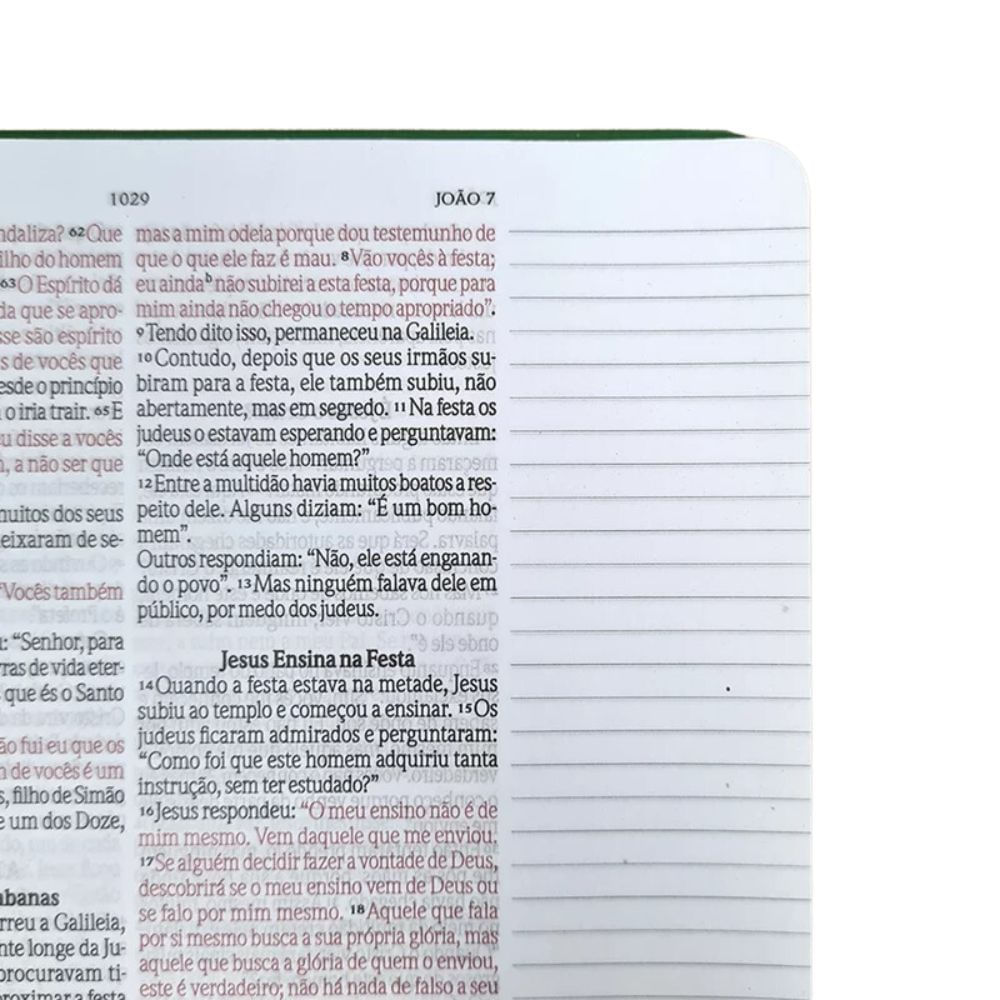 1029
JOÃO 7
ndaliza? 62Que
ilho do homem
63O Espírito dá
da que se apro-
sse são espírito
s de vocês que
esde o princípio
o iria trair. 65E
u disse a vocês
, a não ser que
muitos dos seus
eixaram de se-
“Vocês também
: “Senhor, para
ras de vida eter-
que és o Santo
ão fui eu que os
m de vocês é um
s, filho de Simão
e um dos Doze,
abanas
rreu a Galileia,
nte longe da Ju-
procuravam ti-
roximar a festa
mas a mim odeia porque dou testemunho de
que o que ele faz é mau. 8Vão vocês à festa;
eu aindab não subirei a esta festa, porque para
mim ainda não chegou o tempo apropriado”.
9Tendo dito isso, permaneceu na Galileia.
10Contudo, depois que os seus irmãos su-
biram para a festa, ele também subiu, não
abertamente, mas em segredo. 11Na festa os
judeus o estavam esperando e perguntavam:
“Onde está aquele homem?”
12Entre a multidão havia muitos boatos a res-
peito dele. Alguns diziam: “É um bom ho-
mem”.
Outros respondiam: “Não, ele está enganan-
do o povo”. 13Mas ninguém falava dele em
público, por medo dos judeus.
Jesus Ensina na Festa
14Quando a festa estava na metade, Jesus
subiu ao templo e começou a ensinar. 15Os
judeus ficaram admirados e perguntaram:
“Como foi que este homem adquiriu tanta
instrução, sem ter estudado?”
16Jesus respondeu: “O meu ensino não é de
mim mesmo. Vem daquele que me enviou.
17Se alguém decidir fazer a vontade de Deus,
descobrirá se o meu ensino vem de Deus ou
se falo por mim mesmo. 18Aquele que fala
por si mesmo busca a sua própria glória, mas
aquele que busca a glória de quem o enviou,
este é verdadeiro; não há nada de falso a seu